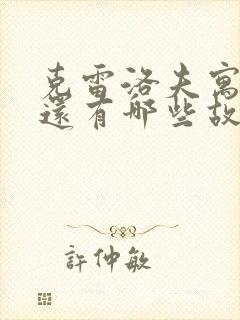 克雷洛夫寓
還有哪些故
許仲敏